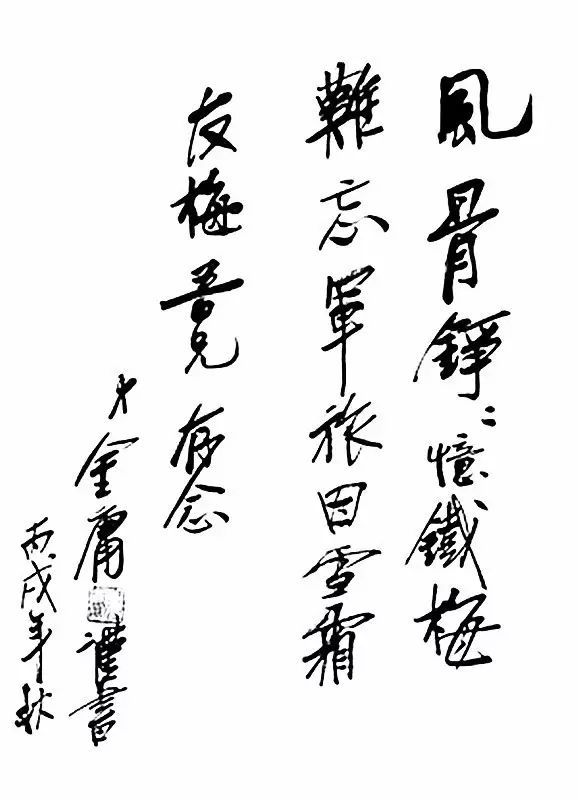 風骨錚〻憶鐵梅
難忘軍旅因雪霜
友梅吾兄存念
弟金庸謹書
丙戌年秋